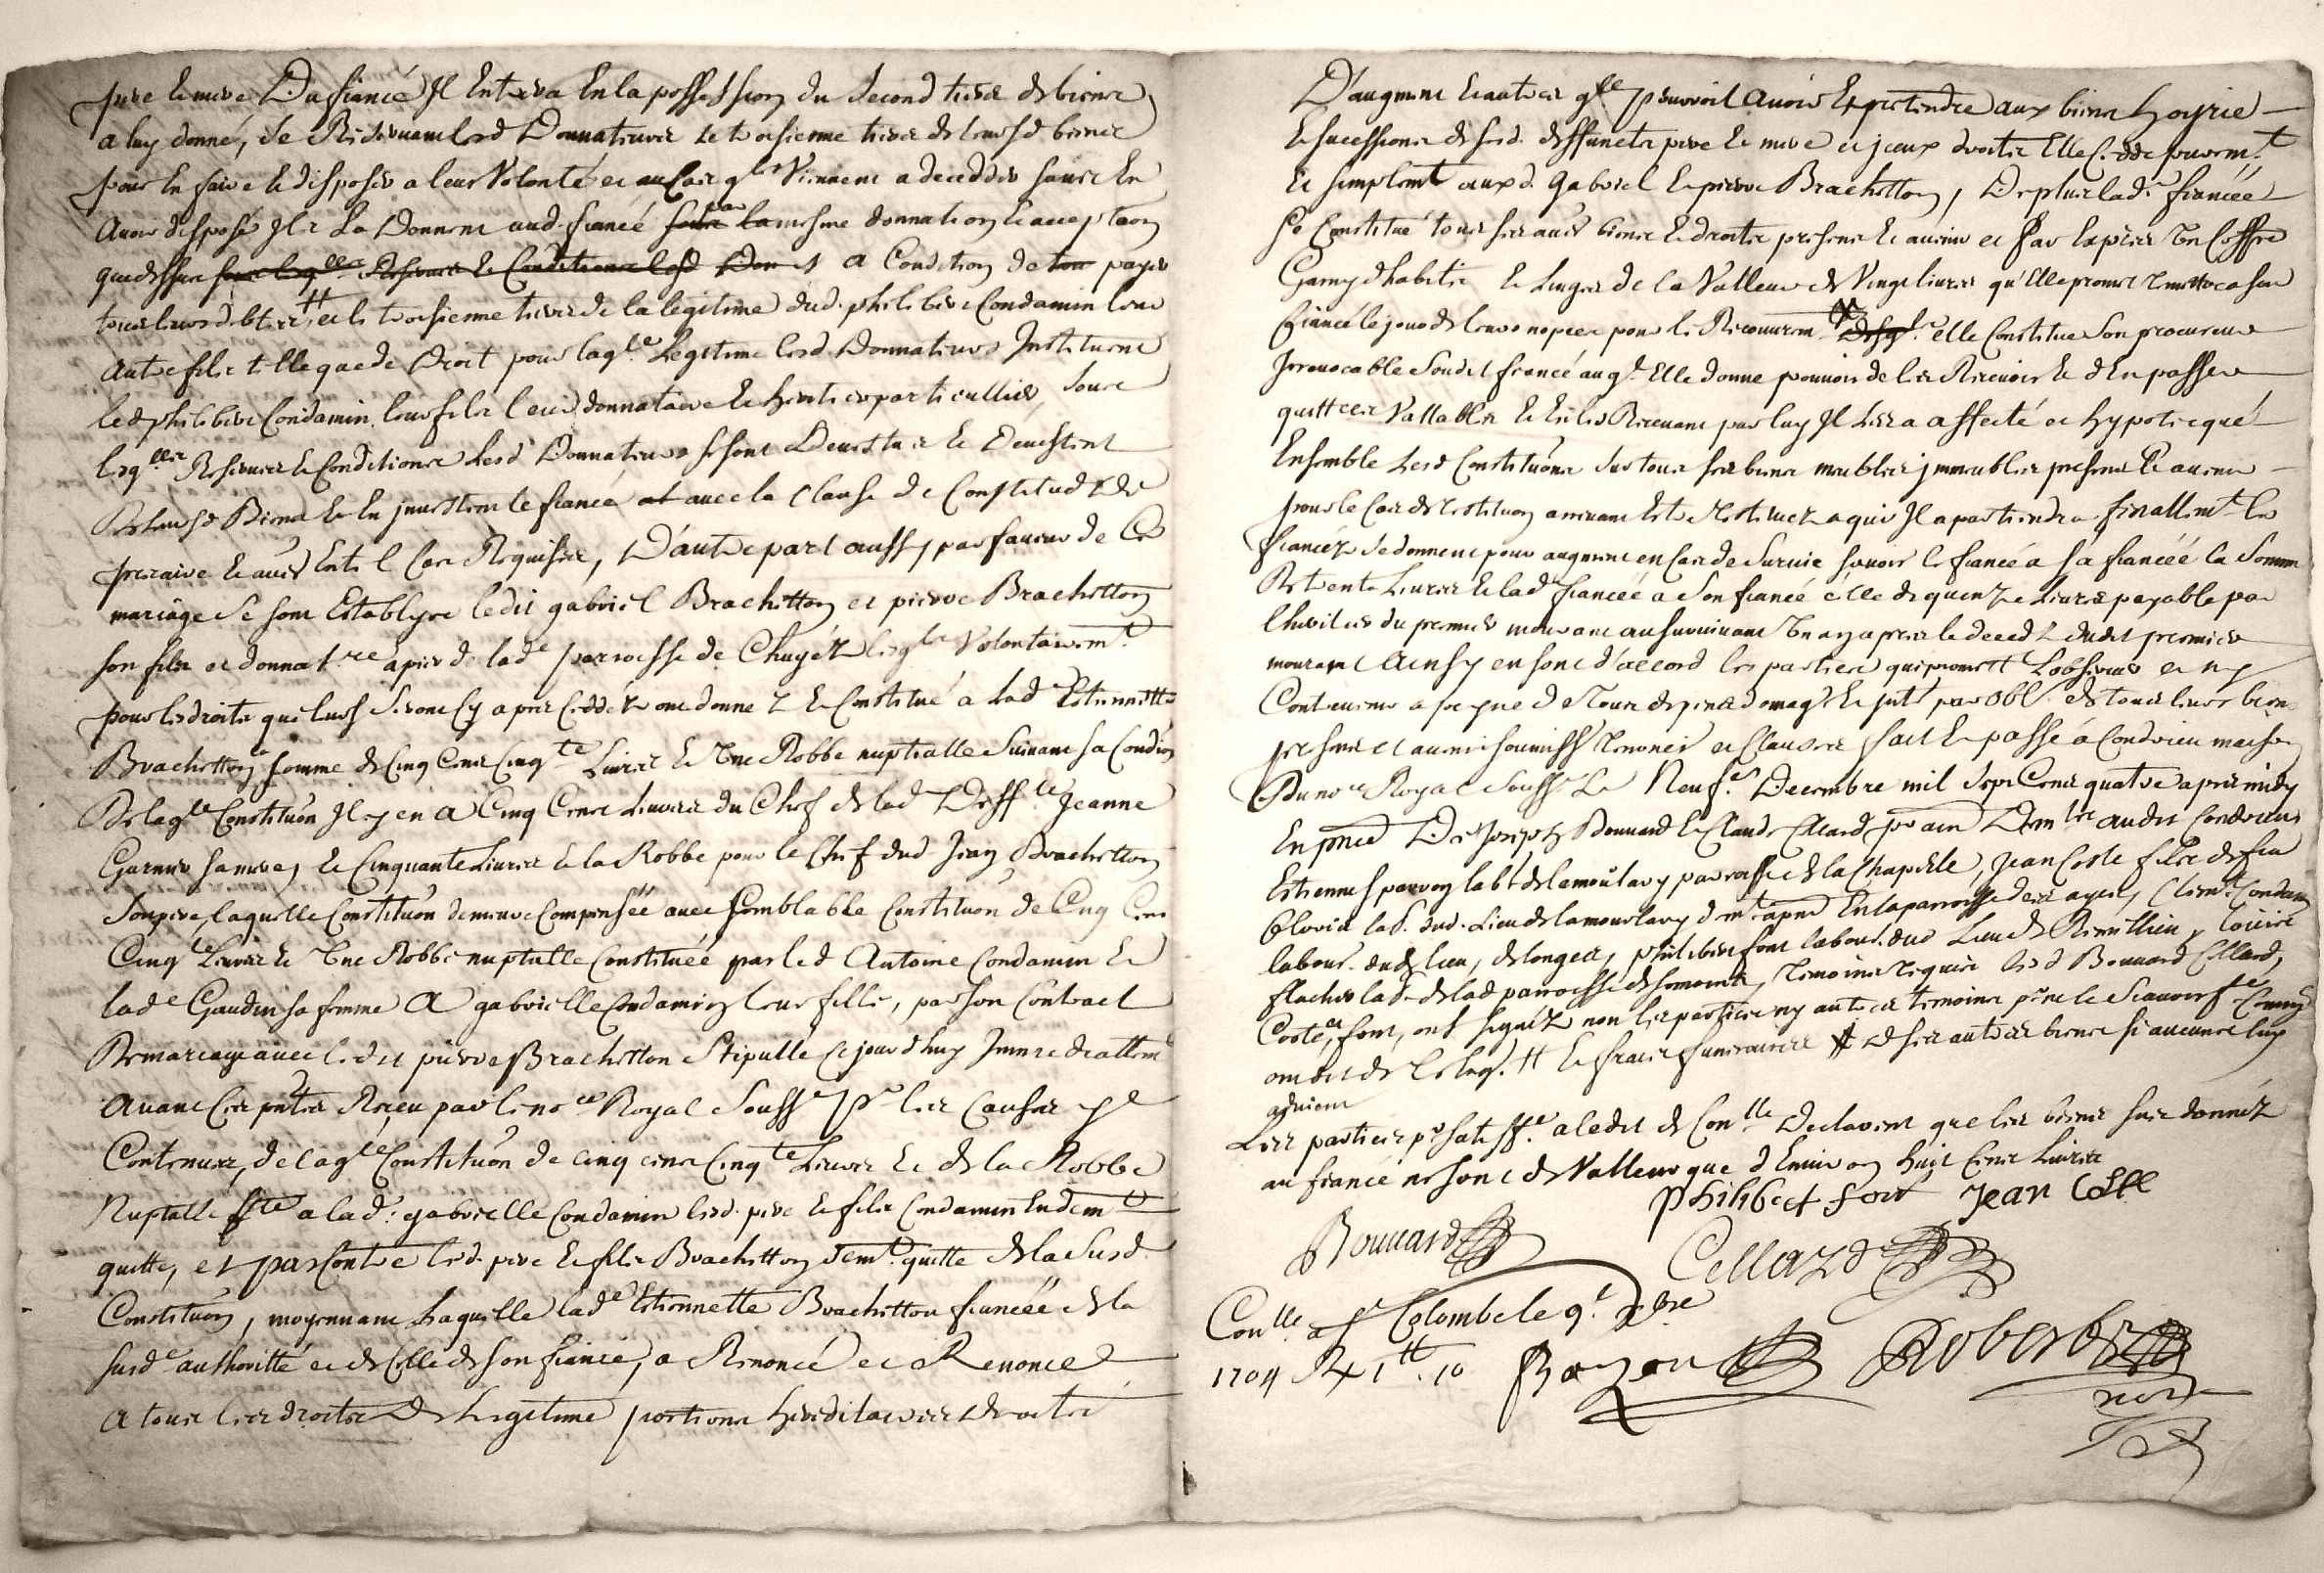 pere & mere Du fiancé Il Entrera En la possession du second tiers de biens
a luy donné, se Reservant lesd Donnateurs le troisieme tiers de leursd biens
pour en faire & disposer a leur Volonté et au Cas q^l Viennent a decedder sans En
Avoir disposé Ils La Donnent aud. fiancé par la mesme donnation & acceptaon
que dessus A Condition de payer
tous leurs debtes # et le troisieme tiers de la legitime dud. philibert Condamin leur
Autre fils telle que de Droit pour laq^le Legitime lesd Donnateurs Instituent
led philibert Condamin leur fils leur donnataire & heritier particullier, Sous
lesq^lles Reserves & Conditions Lesd Donnateurs se sont Devestus & Devestent
De leursd Biens & En investent le fiancé avec la Clause de Constitud de
precaire & aues En tel Cas Requises, D'autre part aussy par faveur de Ce
mariage Se sont Establys ledit gabriel Brachetton et pierre Brachetton
son fils et donnat^re apier de lad^e parroisse de Chuyér lesq^ls Volontairem^t
pour les droits qui leurs seront cy apres ceddéz ont donnez & Constitué a lad Estiennette
Brachetton somme de Cinq Cens Cinq^te Livres & Une Robbe nuptialle Suivant sa Condion
De laq^le Constituôn Il y en A Cinq Cens Livres du Chef de lad Deff^te Jeanne
Garnier sa mere, & Cinquante Livres & la Robbe pour le Chef dud Jean Brachetton
Son pere, laquelle Constituôn demeure Compensée avec semblable Constituôn de Cinq Cens
Cinq^te Livres & Une Robbe nuptialle Constituée par led Antoine Condamin &
lad^e Gaudin sa femme A gabrielle Condamin leur fille, par son Contract
De mariage avec ledit pierre Brachetton Stipullé Ce jourd'huy Immediattem^t
Avant Ces pntes Receu par le no^re Royal Souss^e p^r les Causes y^e
Contenues, de laq^le Constituôn de cinq cens Cinq^te Livres & de la Robbe
Nuptialle f^te a lad^e gabrielle Condamin lesd. pere & fils Condamin En dem^t
quitte, et par Contre lesd. pere & fils Brachetton dem^t quitte de la Susd.
Constituôn, moyennant Laquelle lad^e Estiennette Brachetton fiancéé de la
susd^e authoritté et de Celle de son fiancé, a Renoncé et Renonce
A tous les droits De Legitime portions hereditaires droits
D'augment & autres q^lle pouvroit Avoir & pretendre aux biens hoyrie
& sucessions de sesd. deffuncts pere & mere et jceux droits Elle Cedde purem^t
Et simplem^t auxd. Gabriel & pierre Brachetton, De plus lad^e fiancéé
se Constitué tous ses aues biens & droits presens & avenir et par Exprès Un Coffre
Garny d'habits & Linges de la Valleur de Vingt livres qu'Elle promet remettre a son
fiancé le jour de leurs nopces pour le Recouvrem^t elle Constitue Son procureur
Irrevocable Sondit fiancé auq^l Elle donne pouvoir de les Recevoir & d'En passer
quittces Vallables & En les Recevant par luy Il les a affecté et hypotecqué
Ensemble Lesd Constituôns sur tous ses biens meubles immeubles presens & avenir
pour le Cas de restituon arrivant Estre Restituez a qui Il apartiendra finallem^t les
fiancéz Se donnent pour augment en Cas de Survie savoir le fiancé a sa fiancéé la Somme
De trente Livres & lad^e fiancéé a Son fiancé Celle de quinze Livres payable par
l'heritier du premier mourant au survivant Un an apres le decedz dudit premier
mourant Ainsy en sont d'accord les parties qui promett^t L'observer et ny
Contrevenir a peyne de tous depens domag^s & jnt^s par obl^on de tous leurs biens
presens et avenir soumiss^s renonc^s et Clauses fait & passé a Condrieu maison
Du no^re Royal souss^e Le Neuf^e Decembre mil Sept Cens quatre apres midy
En pnce De Joseph Bonnard & Claude Cellard pr ain Dem^ts audit Condrieu
Estienne lab^r de la moulary parroisse de la Chapelle, Jean Coste fils de feu
Clovis lab. dud. Lieu de la mourlary Clem^t Condam
labour. dud lieu, de longes, philibert font labour. dud Lieu de Remillieu
flacher lab. de lad parroisse de temoins requis lesd Bonnard Cellard,
Coste, & font, ont signéz non les parties ny autres temoins p^r ne le Scavoir f^e Comme
ont dit de Ce Enq. # & fraix funeraires # & des autres biens si aucuns luy
advient
Les parties p^r satisff^e a ledit de Con^lle Declarent que les biens sus donnéz
au fiancé ne sont de Valleur que d'Environ huit Cens Livres
philibert font Jean Coste
Bonnard Cellard
Con^lle a S^te Colombe le 9^e Xbre
1704 R 1^tt. 10
Robert
no^re